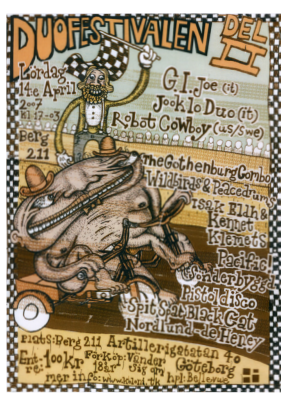 DUOFESTIVALEN DEL II
Lördag
14:e April
2007
Kl: 17-03
Berg
211
G.I. Joe (it)
Jooklo Duo (it)
Robot Cowboy (us/swe)
The Gothenburg Combo
Wildbirds & Peacedrums
Isak Eldh &
Kernet
Klemets
Pacific!
Gönderbygd
Pistol disco
Spit Scab Black Cat
Nordlund - de Heney
Plats: Berg 211 Artillerigatan 40
Ent- 100kr Förköp: Vänder Göteborg
re: 18år sig om
mer info: hpl: Bellevue